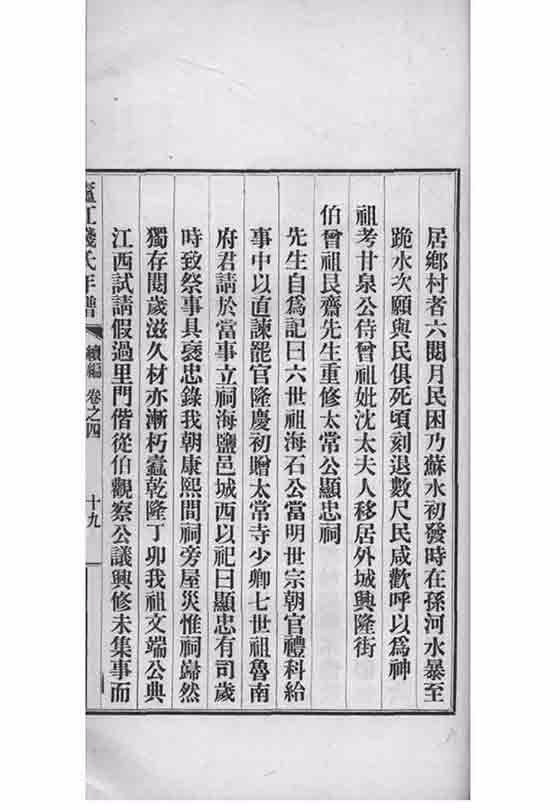 居鄉村者六閱月民困乃蘇水初發時在孫河水暴至
跪水次願與民俱死頃刻退數尺民咸歡呼以爲神
祖考甘泉公侍曾祖妣沈太夫人移居外城興隆街
伯曾祖艮齋先生重修太常公顯忠祠
先生自爲記曰六世祖海石公當明世宗朝官禮科給
事中以直諫罷官隆慶初贈太常寺少卿七世祖魯南
府君請於當事立祠海鹽邑城西以祀曰顯忠有司歲
時致祭事具褒忠錄我朝康熙間祠旁屋災惟祠巋然
獨存閱歲滋久材亦漸朽蠹乾隆丁卯我祖文端公典
江西試請假過里門偕從伯觀察公議興修未集事而
廬江錢氏年譜 續編 卷之四 十九